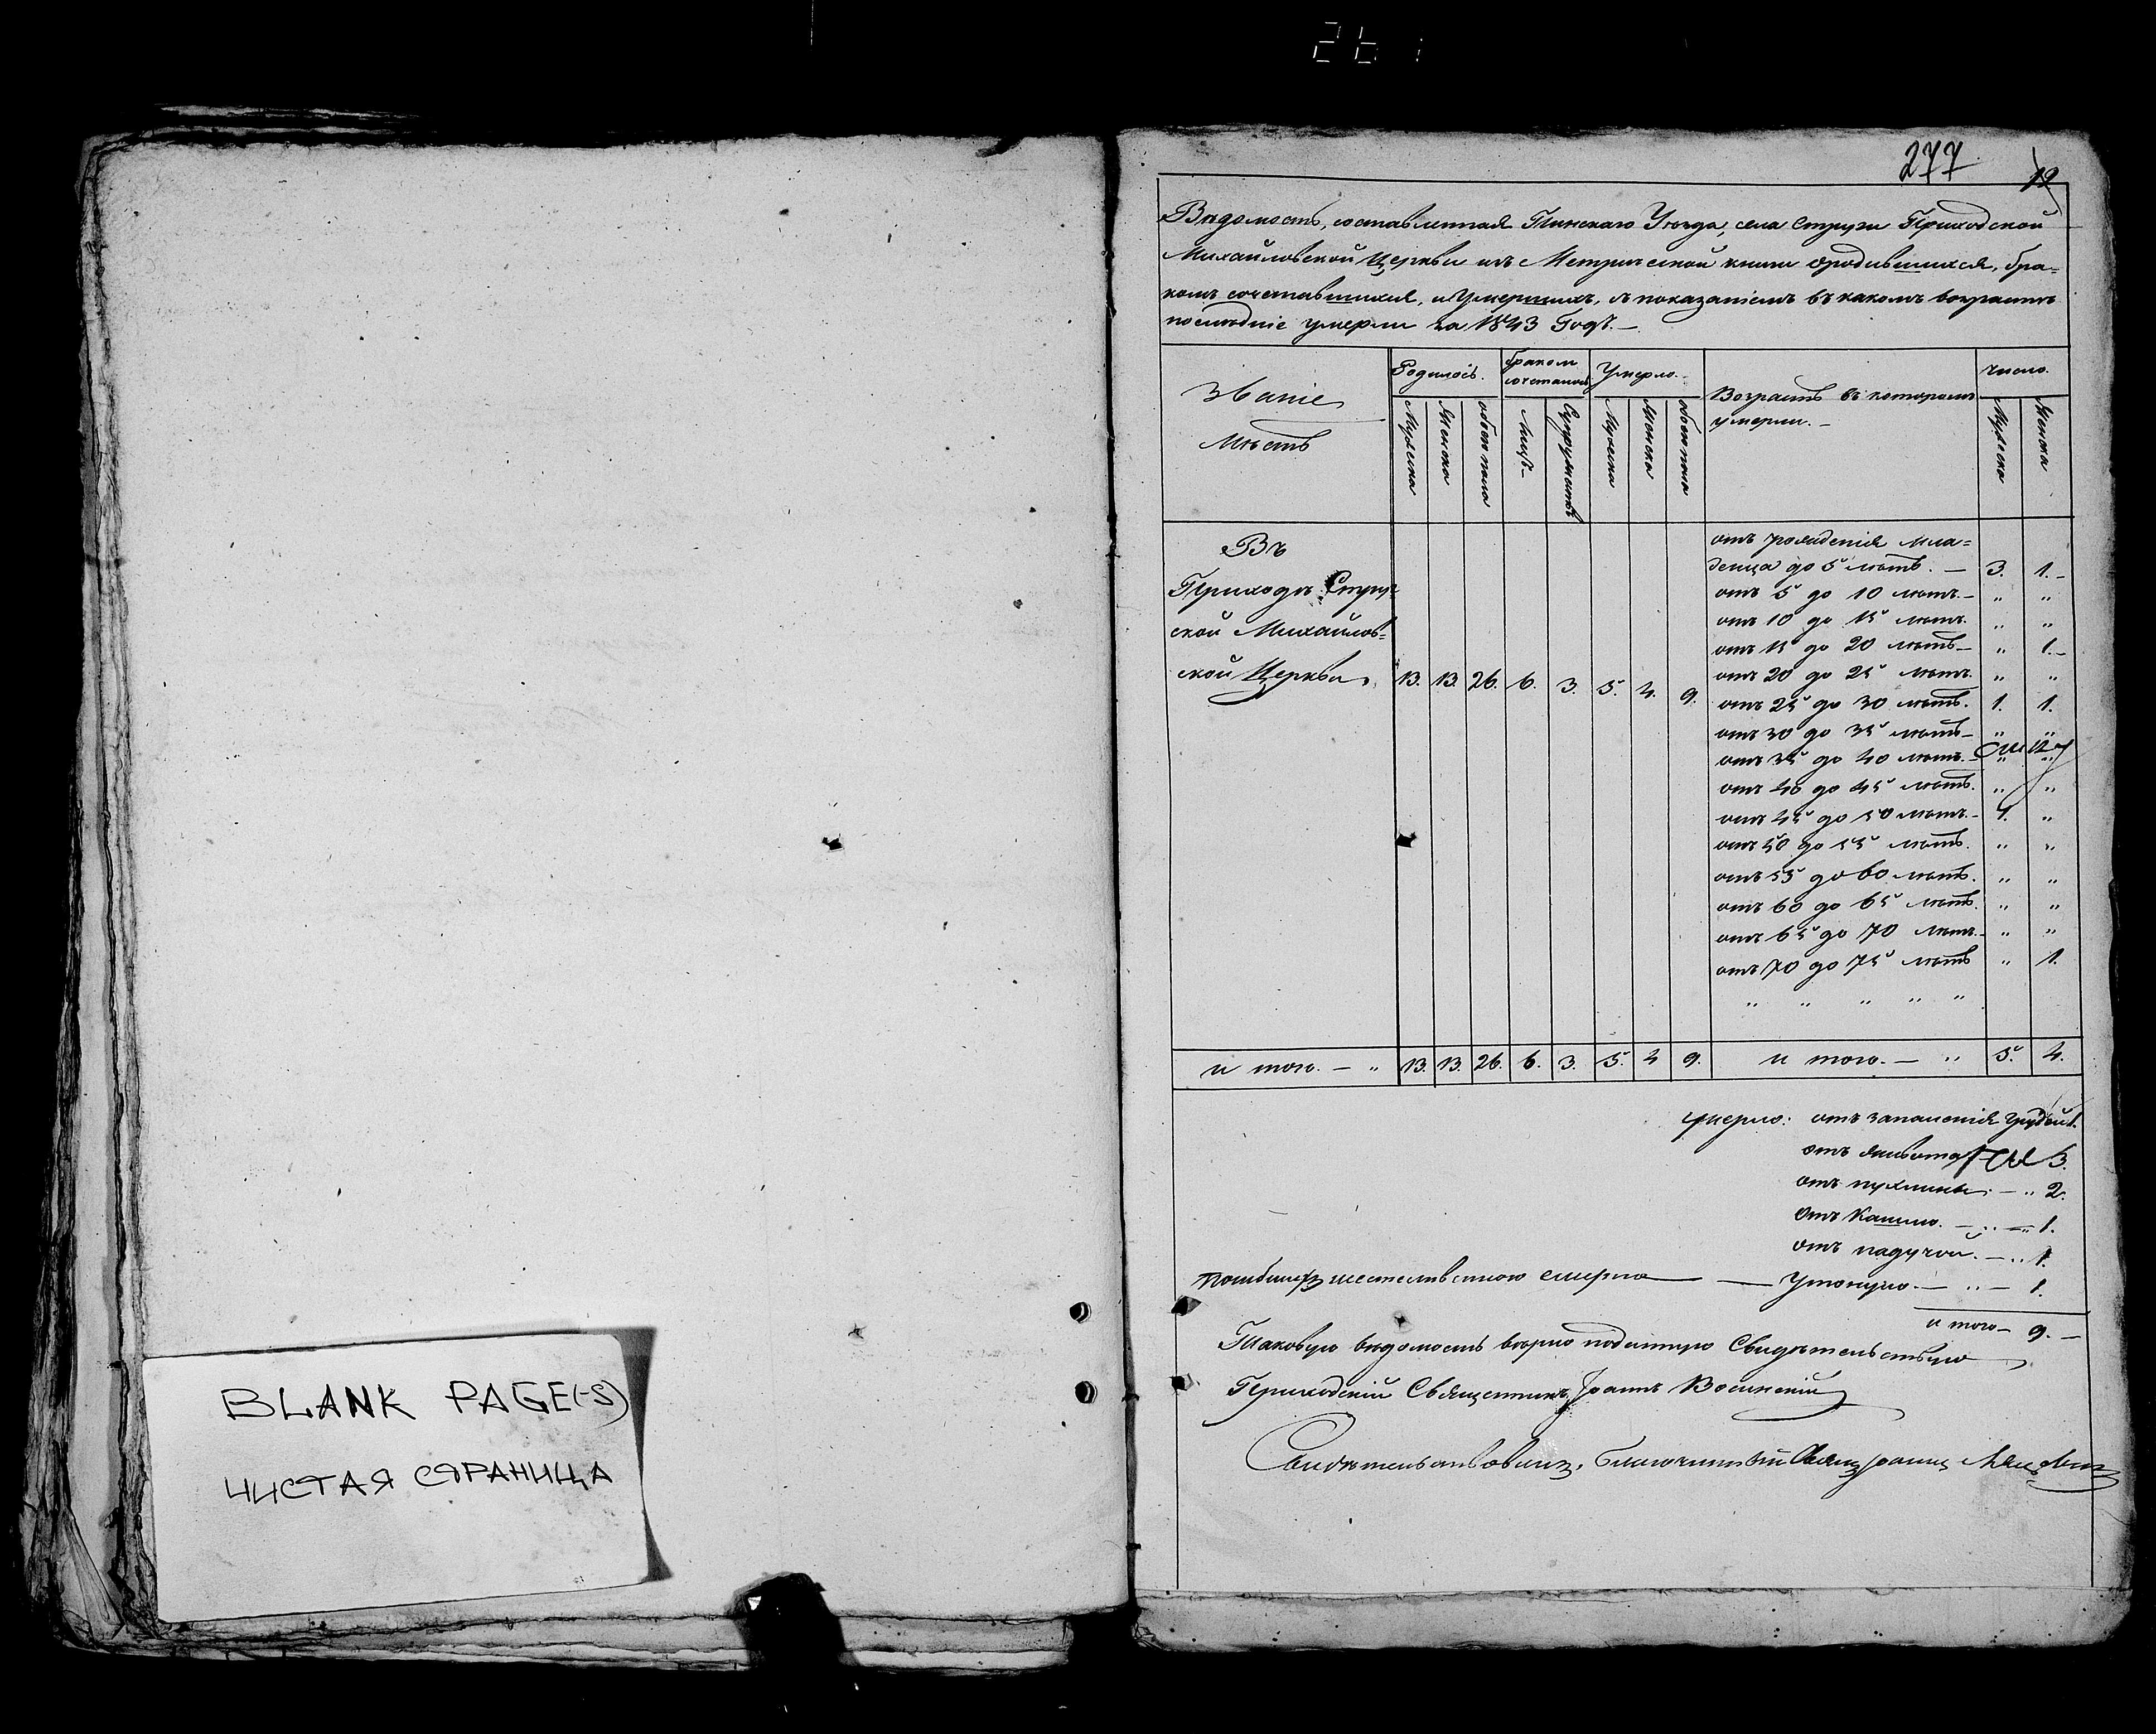 261
BLANK PAGE(-S)
ЧИСТАЯ СТРАНИЦА
277
19
Вѣдомость, составленная Пинскаго Уѣзда, села Струги Приходской
Михайловской Церкви изъ Метрической книги ородившихся, бра=
комъ сочетавшихся, и Умершихъ, съ показаніемъ въ какомъ возрастѣ
послѣдніе умерли за 1843 Годъ.—
Званіе Мѣстъ
Родилось.
бракомъ сочеталось
Умерло.—
Возрастъ въ которомъ умерли.—
число.
Мужеска Женска обоего пола Лицъ Супружествъ Мужеска Женска обоего пола Мужеска Женска
Въ
Приходѣ Струж=
ской Михайлов=
ской Церкви 13. 13. 26. 6. 3. 5. 4. 9.
отъ рожденія мла=
денца до 5 лѣтъ. — 3. 1.—
отъ 5 до 10 лѣтъ.— „ „
отъ 10 до 15 лѣтъ. „ „
отъ 15 до 20 лѣтъ— „ 1.—
отъ 20 до 25 лѣтъ. „ „
отъ 25 до 30 лѣтъ. 1. 1.
отъ 30 до 35 лѣтъ— „ „
отъ 35 до 40 лѣтъ.— „ „
отъ 40 до 45 лѣтъ. „ „
отъ 45 до 50 лѣтъ.— 1. „
отъ 50 до 55 лѣтъ. „ „
отъ 55 до 60 лѣтъ. „ „
отъ 60 до 65 лѣтъ. „ „
отъ 65 до 70 лѣтъ.— „ „
отъ 70 до 75 лѣтъ „ 1.
„ „ „ „ „
и того. — „ 13. 13. 26. 6. 3. 5. 4 9. и того. — „ 5. 4.
умерло: отъ запаленія грудей 1.
отъ живота 3.
отъ пухлины. — „ 2.
Отъ Кашлю. — „ — 1.
отъ падучой. — „ 1.
смертію — Утонуло. — „ — 1.
и того— 9.—
Таковую вѣдомость вѣрно поданную Свидѣтельствую
Приходскій Священникъ Іоаннъ
Свидѣтельствовалъ, благочинный Свящ Іоаннъ